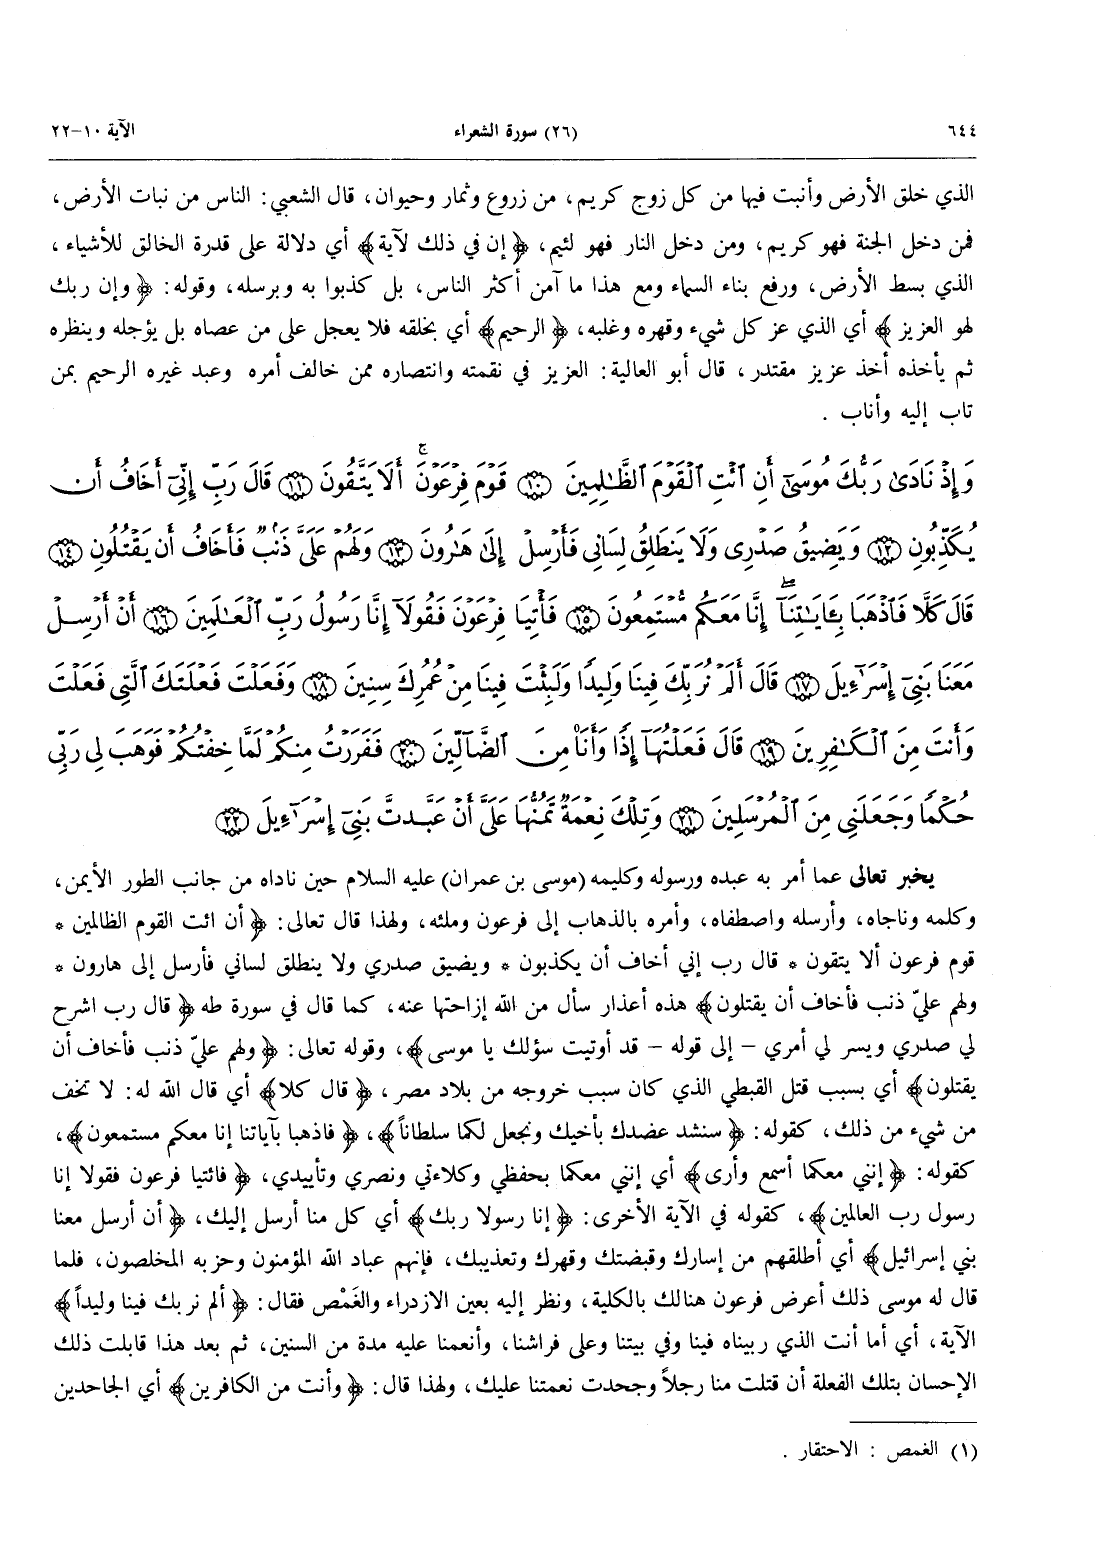 ٦٤٤ (٢٦) سورة الشعراء الآية ١٠-٢٢
الذي خلق الأرض وأنبت فيها من كل زوج كريم، من زروع وثمار وحيوان، قال الشعبي: الناس من نبات الأرض،
فمن دخل الجنة فهو كريم، ومن دخل النار فهو لئيم، ﴿إن في ذلك لآية﴾ أي دلالة على قدرة الخالق للأشياء،
الذي بسط الأرض، ورفع بناء السماء ومع هذا ما آمن أكثر الناس، بل كذبوا به وبرسله، وقوله: ﴿وإن ربك
لهو العزيز﴾ أي الذي عز كل شيء وقهره وغلبه، ﴿الرحيم﴾ أي بخلقه فلا يعجل على من عصاه بل يؤجله وينظره
ثم يأخذه أخذ عزيز مقتدر، قال أبو العالية: العزيز في نقمته وانتصاره ممن خالف أمره وعبد غيره الرحيم بمن
تاب إليه وأناب .
وَإِذْ نَادَىٰ رَبُّكَ مُوسَىٰٓ أَنِ ٱئْتِ ٱلْقَوْمَ ٱلظَّـٰلِمِينَ ﴿١٠﴾ قَوْمَ فِرْعَوْنَ ۚ أَلَا يَتَّقُونَ ﴿١١﴾ قَالَ رَبِّ إِنِّىٓ أَخَافُ أَن
يُكَذِّبُونِ ﴿١٢﴾ وَيَضِيقُ صَدْرِى وَلَا يَنطَلِقُ لِسَانِى فَأَرْسِلْ إِلَىٰ هَـٰرُونَ ﴿١٣﴾ وَلَهُمْ عَلَىَّ ذَنۢبٌ فَأَخَافُ أَن يَقْتُلُونِ ﴿١٤﴾
قَالَ كَلَّا فَٱذْهَبَا بِـَٔايَـٰتِنَآ ۖ إِنَّا مَعَكُم مُّسْتَمِعُونَ ﴿١٥﴾ فَأْتِيَا فِرْعَوْنَ فَقُولَآ إِنَّا رَسُولُ رَبِّ ٱلْعَـٰلَمِينَ ﴿١٦﴾ أَنْ أَرْسِلْ
مَعَنَا بَنِىٓ إِسْرَٰٓءِيلَ ﴿١٧﴾ قَالَ أَلَمْ نُرَبِّكَ فِينَا وَلِيدًا وَلَبِثْتَ فِينَا مِنْ عُمُرِكَ سِنِينَ ﴿١٨﴾ وَفَعَلْتَ فَعْلَتَكَ ٱلَّتِى فَعَلْتَ
وَأَنتَ مِنَ ٱلْكَـٰفِرِينَ ﴿١٩﴾ قَالَ فَعَلْتُهَآ إِذًا وَأَنَا۠ مِنَ ٱلضَّآلِّينَ ﴿٢٠﴾ فَفَرَرْتُ مِنكُمْ لَمَّا خِفْتُكُمْ فَوَهَبَ لِى رَبِّى
حُكْمًا وَجَعَلَنِى مِنَ ٱلْمُرْسَلِينَ ﴿٢١﴾ وَتِلْكَ نِعْمَةٌ تَمُنُّهَا عَلَىَّ أَنْ عَبَّدتَّ بَنِىٓ إِسْرَٰٓءِيلَ ﴿٢٢﴾
يخبر تعالى عما أمر به عبده ورسوله وكليمه (موسى بن عمران) عليه السلام حين ناداه من جانب الطور الأيمن،
وكلمه وناجاه، وأرسله واصطفاه، وأمره بالذهاب إلى فرعون وملئه، ولهذا قال تعالى: ﴿أن ائت القوم الظالمين *
قوم فرعون ألا يتقون * قال رب إني أخاف أن يكذبون * ويضيق صدري ولا ينطلق لساني فأرسل إلى هارون *
ولهم عليّ ذنب فأخاف أن يقتلون﴾ هذه أعذار سأل من الله إزاحتها عنه، كما قال في سورة طه ﴿قال رب اشرح
لي صدري ويسر لي أمري - إلى قوله - قد أوتيت سؤلك يا موسى﴾، وقوله تعالى: ﴿ولهم عليّ ذنب فأخاف أن
يقتلون﴾ أي بسبب قتل القبطي الذي كان سبب خروجه من بلاد مصر، ﴿قال كلا﴾ أي قال الله له: لا تخف
من شيء من ذلك، كقوله: ﴿سنشد عضدك بأخيك ونجعل لكما سلطاناً﴾، ﴿فاذهبا بآياتنا إنا معكم مستمعون﴾،
كقوله: ﴿إنني معكما أسمع وأرى﴾ أي إنني معكما بحفظي وكلاءتي ونصري وتأييدي، ﴿فائتيا فرعون فقولا إنا
رسول رب العالمين﴾، كقوله في الآية الأخرى: ﴿إنا رسولا ربك﴾ أي كل منا أرسل إليك، ﴿أن أرسل معنا
بني إسرائيل﴾ أي أطلقهم من إسارك وقبضتك وقهرك وتعذيبك، فإنهم عباد الله المؤمنون وحزبه المخلصون، فلما
قال له موسى ذلك أعرض فرعون هنالك بالكلية، ونظر إليه بعين الازدراء والغَمْص فقال: ﴿ألم نربك فينا وليداً﴾
الآية، أي أما أنت الذي ربيناه فينا وفي بيتنا وعلى فراشنا، وأنعمنا عليه مدة من السنين، ثم بعد هذا قابلت ذلك
الإحسان بتلك الفعلة أن قتلت منا رجلاً وجحدت نعمتنا عليك، ولهذا قال: ﴿وأنت من الكافرين﴾ أي الجاحدين
(١) الغمص : الاحتقار .